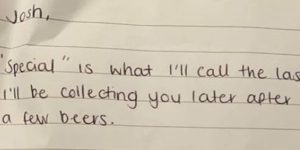 Josh,
"Special" is what I'll call the las
I'll be collecting you later after
a few beers.